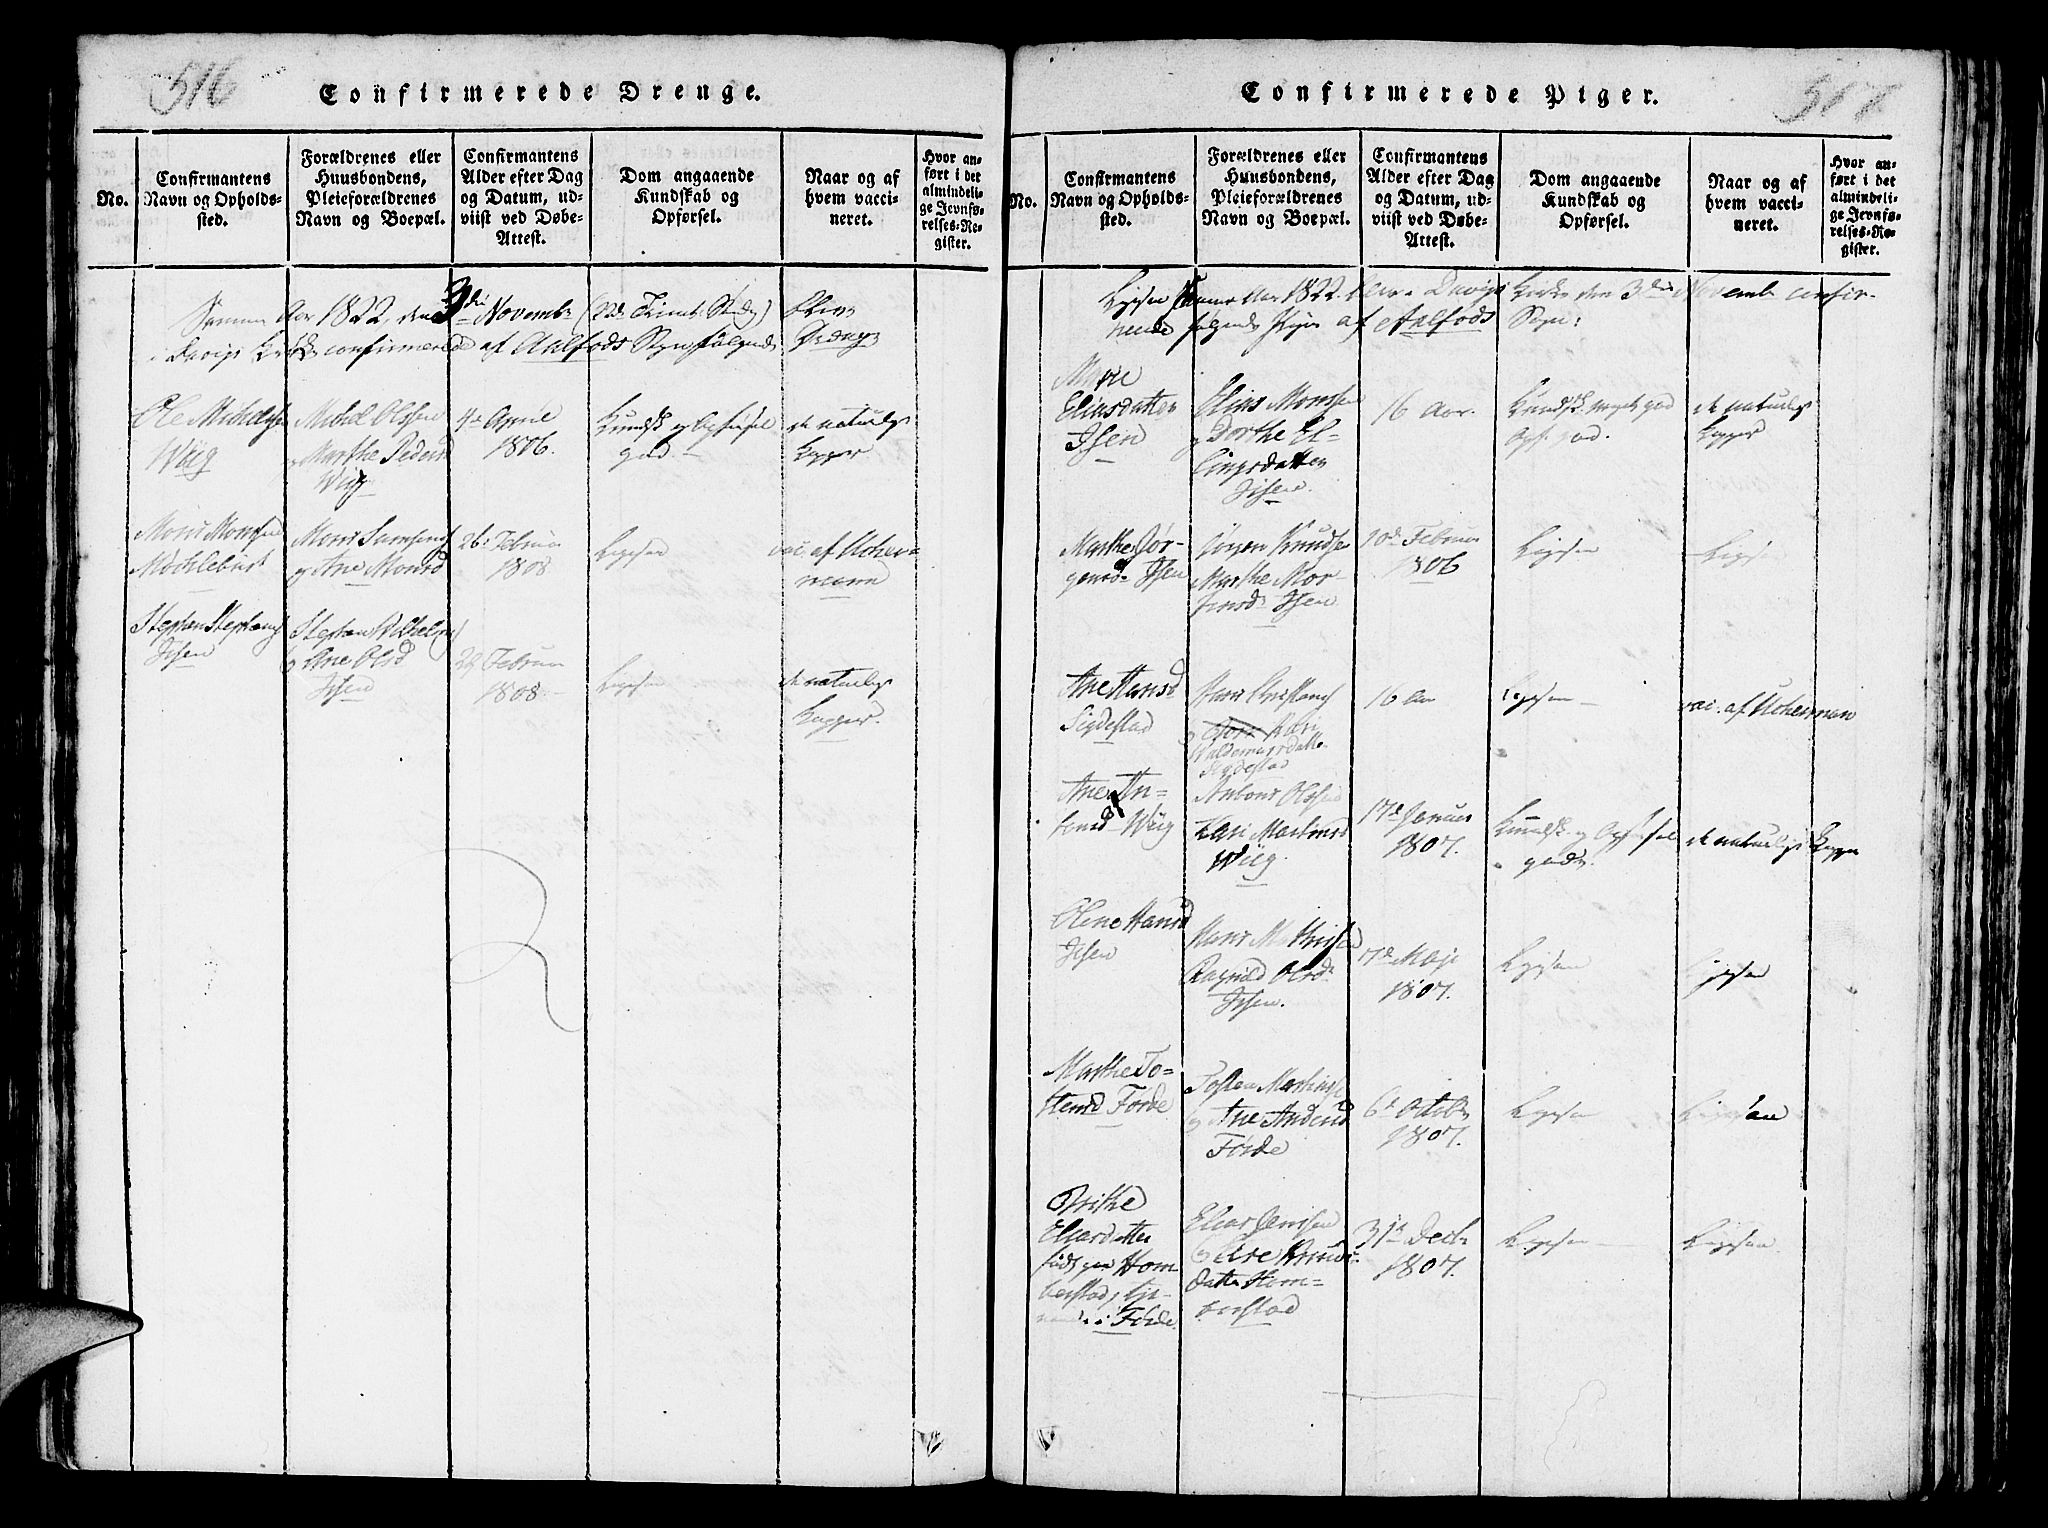 516
Confirmerede Drenge.
No.
Confirmantens
Navn og Opholds-
sted.
Forældrenes eller
Huusbondens,
Pleieforældrenes
Navn og Boepæl.
Confirmantens
Alder efter Dag
og Datum, ud-
viist ved Døbe-
Attest.
Dom angaaende
Kundskab og
Opførsel.
Naar og af
hvem vacci-
neret.
Hvor an-
ført i det
almindeli-
ge Jevnfø-
relses-Re-
gister.
Samme Aar 1822, den 3die Novembr
i Davigs Kirke confirmerede af Aalfods Sogn følgende Drenge
Ole Michelsen
Wiig
Michel Olssen
og Marthe Pedersd
Wiig
4de April
1806.
Kundsk og Opførsel
god.
de naturlige
Kopper
Mons Monssen
Mochlebust
Mons Samsens
og Ane Monsd
26de Februar
1808
Ligesaa
vac. af Koher-
mann
Stephan Stephans
Isen
Stephan Wilhelms
og Ane Olsd
Isen
29 Februar
1808.
Ligesaa
de naturlige
Kopper.
517
Confirmerede Piger.
No.
Confirmantens
Navn og Opholds-
sted.
Forældrenes eller
Huusbondens,
Pleieforældrenes
Navn og Boepæl.
Confirmantens
Alder efter Dag
og Datum, ud-
viist ved Døbe-
Attest.
Dom angaaende
Kundskab og
Opførsel.
Naar og af
hvem vacci-
neret.
Hvor an-
ført i det
almindeli-
ge Jevnfø-
relses-Re-
gister.
Ligesaa samme Aar 1822. blev i Davigs Kirke den 3die Novembr confir-
merede følgende Piger af Aalfods Sogn:
Marie
Eliasdatter
Isen
Elias Monsen
og Dorthe El-
lingsdatter
Isen.
16 Aar.
Kundsk. meget god
Opf. god.
de naturlige
Kopper
Marthe Jør-
gensd. Isen
Jørgen Knudsen
Marthe Mor-
tensd Isen
10de Februar
1806
Ligesaa
Ligs
Ane Hansd
Sigdestad
Hans Christens
og Kari
Waldemarsdatter
Sigdestad
16 Aar
Ligesaa
vac. af Koherman
Ane An-
tonsd Wiig
Antons Olssen
Kari Martinsd
Wiig.
17de Januar
1807.
Kundsk. og Opførsel
gode.
de naturlige Kopper
Olene Hansd
Isen
Hans Mathissen
Ragnild Olsdr
Isen.
17de Maji
1807.
Ligesaa
Ligesaa
Marthe To-
stensd Førde
Tosten Martinsen
og Ane Andersd
Førde
6te Octobr
1807.
Ligesaa
Ligesaa
Brithe
Eliasdatter
født paa Hom-
berstad, tje-
nende i Førde.
Elias Jenssen
datter Hom-
berstad
31te Decbr
1807.
Ligesaa
Ligesaa